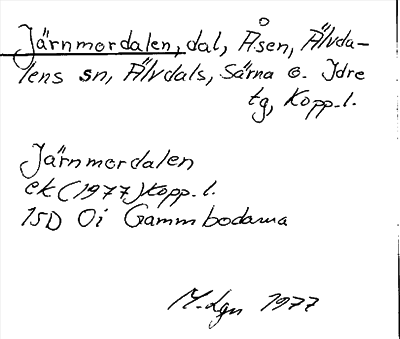 Järnmordalen, dal, Åsen, Älvda-
lens sn, Älvdals, Särna o. Idre
tg, Kopp. l.
Järnmordalen
ek (1977) Kopp. l.
15D 0i Gammbodarna
M. Lgn 1977